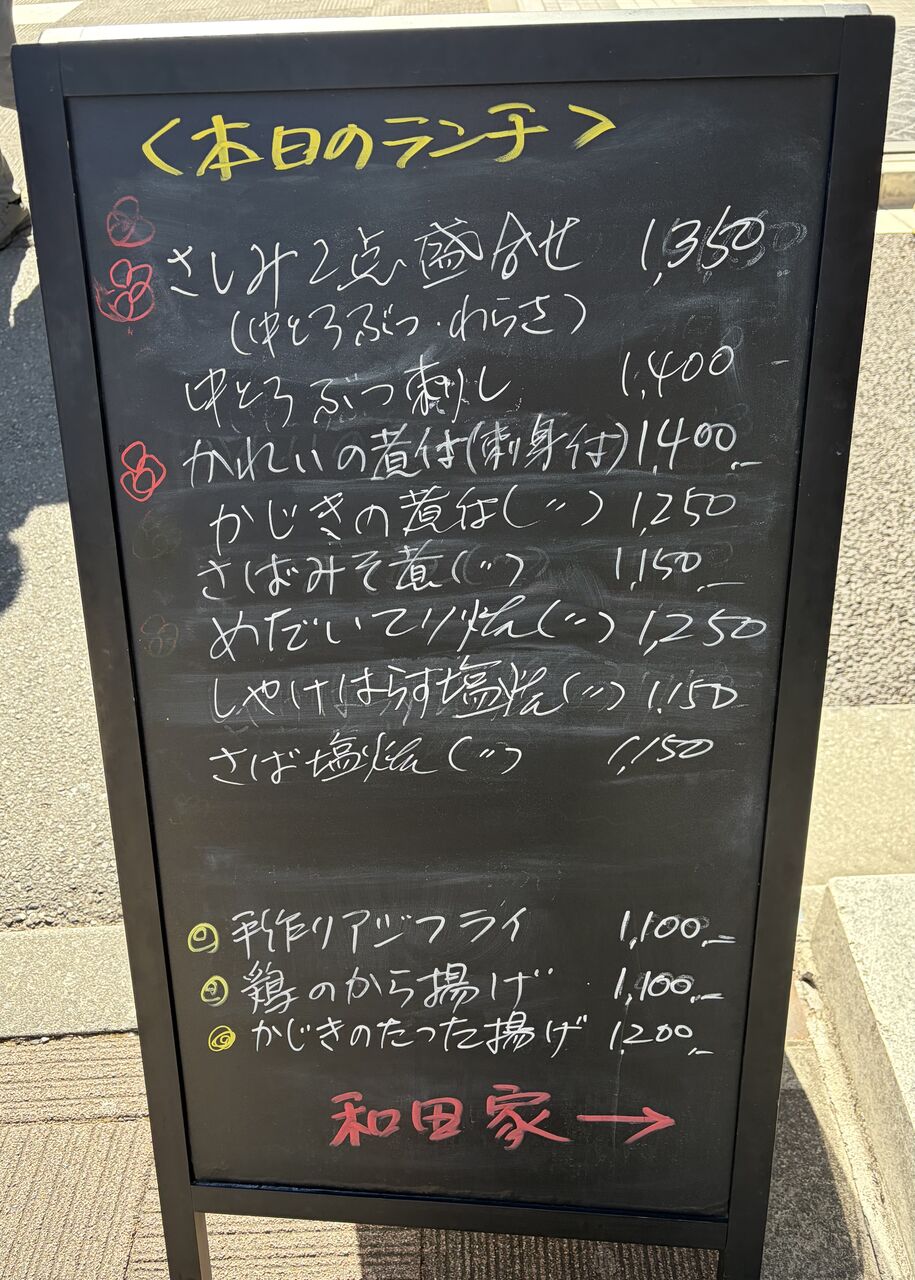 <本日のランチ>
さしみ2点盛合せ 1,350
(中とろぶつ・わらさ)
中とろぶつ刺し 1,400
かれいの煮付(刺身付) 1,400.-
かじきの煮付(〃) 1,250
さばみそ煮(〃) 1,150.-
めだいてり焼(〃) 1,250
しゃけはらす塩焼(〃) 1,150
さば塩焼(〃) 1,150
手作りアジフライ 1,100.-
鶏のから揚げ 1,100.-
かじきのたつた揚げ 1,200.-
和田家→